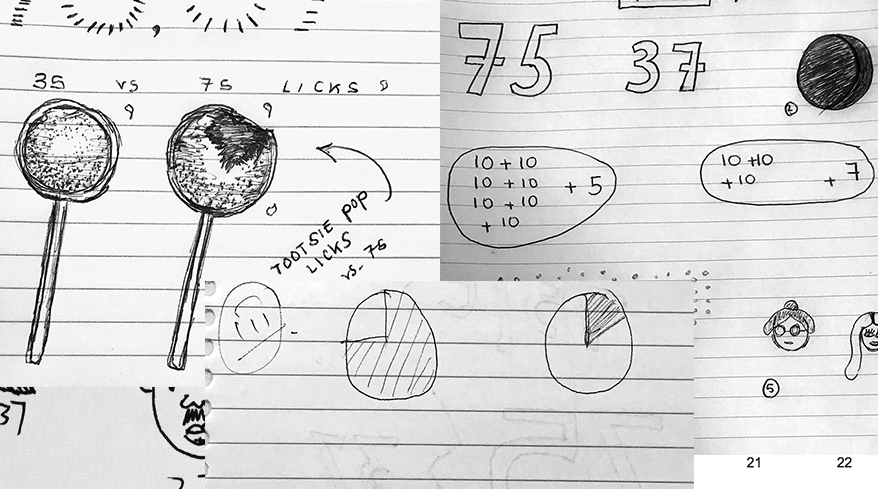 35 vs 75 LICKS
TOOTSIE POP
LICKS
vs. 75
75 37
②
10 + 10
10 + 10
10 + 10
+ 10
+ 5
10 + 10
+ 10
+ 7
⑤
21 22
37